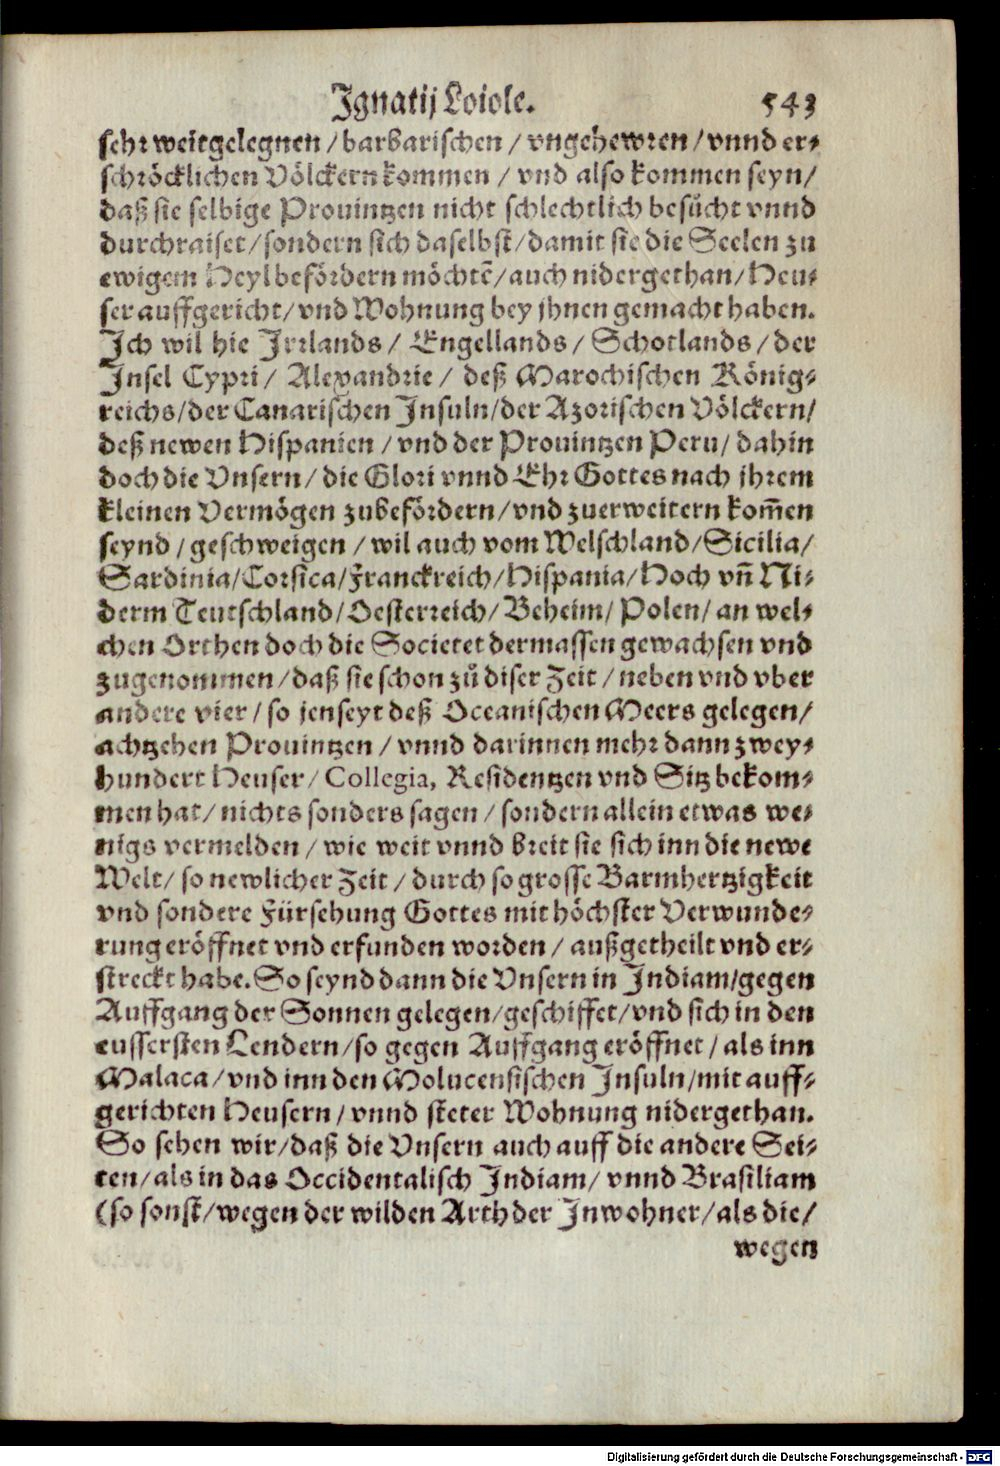 Ignatij Loiole. 543
sehr weitgelegnen / barbarischen / vngehewren / vnnd er-
schröcklichen Völckern kommen / vnd also kommen seyn/
daß sie selbige Prouintzen nicht schlechtlich besůcht vnnd
durchraiset/sondern sich daselbst/damit sie die Seelen zu
ewigem Heyl befördern möchtē/auch nidergethan/Heu-
ser auffgericht/vnd Wohnung bey jhnen gemacht haben.
Ich wil hie Irrlands/ Engellands/ Schotlands/der
Insel Cypri/ Alexandrie/ deß Marochischen König-
reichs/der Canarischen Insuln/der Azorischen Völckern/
deß newen Hispanien /vnd der Prouintzen Peru/ dahin
doch die Vnsern/ die Glori vnnd Ehr Gottes nach jhrem
kleinen Vermögen zubefördern/vnd zuerweitern kom̄en
seynd /geschweigen /wil auch vom Welschland/Sicilia/
Sardinia/Corsica/Franckreich/Hispania/Hoch vn̄ Ni-
derm Teutschland/Oesterreich/Beheim/Polen/an wel-
chen Orthen doch die Societet dermassen gewachsen vnd
zugenommen/daß sie schon zů diser Zeit /neben vnd vber
andere vier/so jenseyt deß Oceanischen Meers gelegen/
achtzehen Prouintzen /vnnd darinnen mehr dann zwey-
hundert Heuser/Collegia, Residentzen vnd Sitz bekom-
men hat/nichts sonders sagen /sondern allein etwas we-
nigs vermelden /wie weit vnnd breit sie sich inn die newe
Welt/ so newlicher Zeit /durch so grosse Barmhertzigkeit
vnd sondere Fürsehung Gottes mit höchster Verwunde-
rung eröffnet vnd erfunden worden / außgetheilt vnd er-
streckt habe. So seynd dann die Vnsern in Indiam/gegen
Auffgang der Sonnen gelegen/geschiffet/vnd sich in den
eussersten Lendern/so gegen Auffgang eröffnet /als inn
Malaca/vnd inn den Molucensischen Insuln/mit auff-
gerichten Heusern/vnnd steter Wohnung nidergethan.
So sehen wir/daß die Vnsern auch auff die andere Sei-
ten/als in das Occidentalisch Indiam/vnnd Brasiliam
(so sonst/wegen der wilden Arth der Inwohner/als die/
wegen
Digitalisierung gefördert durch die Deutsche Forschungsgemeinschaft - DFG